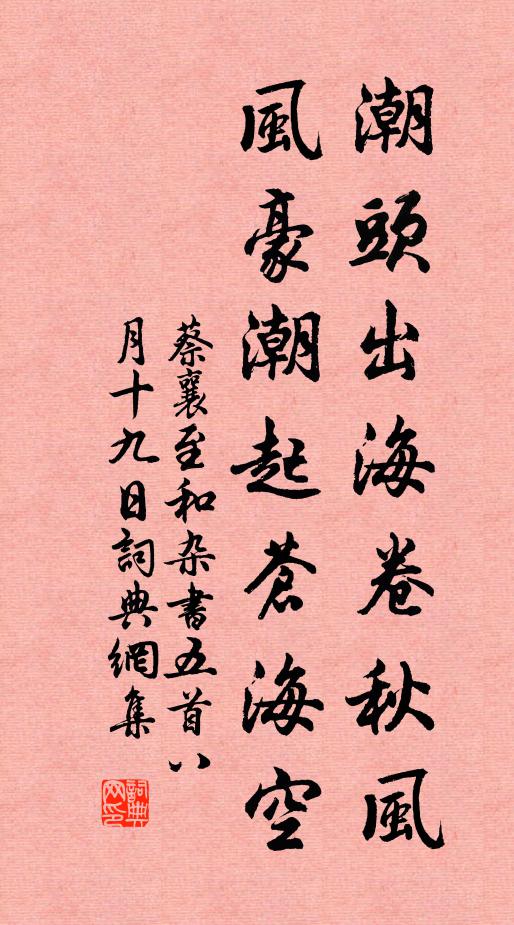 潮頭出海卷秋風
風豪潮起蒼海空
蔡襄至和杂書五首八
月十九日詞典網集
詞典网印